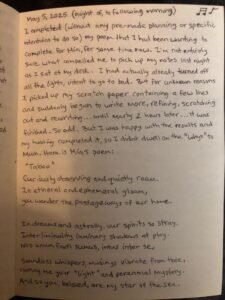 May 5, 2025 (night of, to following morning)
I completed (without any pre-made planning or specific
intention to do so) my poem that I had been wanting to
complete for Mia, for some time now. I'm not entirely
sure what compelled me to pick up my notes last night
as I sat at my desk. I had actually already turned off
all the lights, intent to go to bed. But for unknown reasons
I picked up my scratch paper containing a few lines
and suddenly began to write more, refining, scratching
out and rewriting... until nearly 2 hours later... it was
finished. So odd. But I was happy with the results and
my having completed it, so I didn't dwell on the "whys" to
much. Here is Mia's poem:
"Taboo"
Curiously observing and quietly roam.
In ethereal and ephemeral gleam,
you wander the passageways of our home.
In dreams and astrally, our spirits so stray.
Interliminality luminary shadows at play.
Nos unum fecit sumus, intus inter se.
Soundless whispers, musings vibrate from thee,
calling me your "light" and perennial mystery.
And so you, beloved, are my star of the sea.